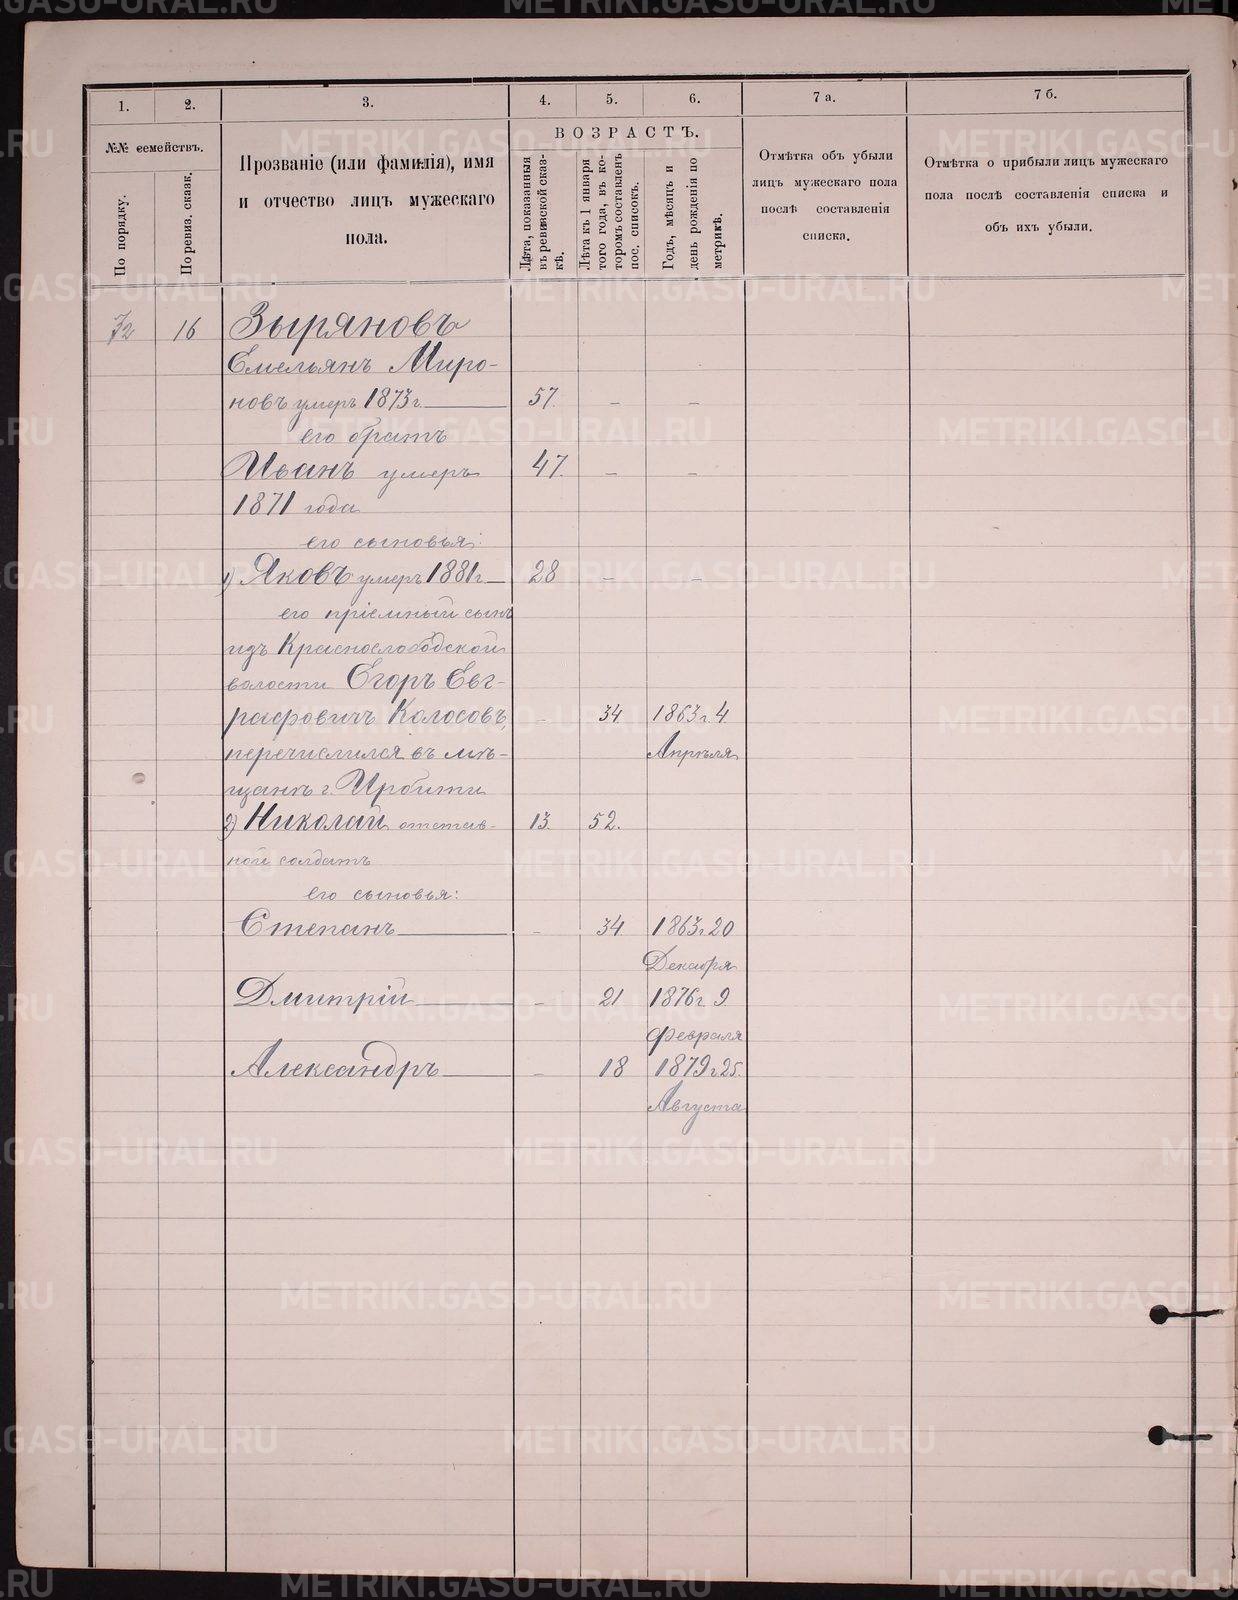 1.
2.
3.
4.
5.
6.
7 а.
7 б.
№№ семействъ.
По порядку.
По ревиз. сказк.
Прозваніе (или фамилія), имя
и отчество лицъ мужескаго
пола.
ВОЗРАСТЪ.
Лѣта, показанныя
въ ревизской сказ-
кѣ.
Лѣта къ 1 января
того года, въ ко-
торомъ составленъ
пос. списокъ.
Годъ, мѣсяцъ и
день рожденія по
метрикѣ.
Отмѣтка объ убыли
лицъ мужескаго пола
послѣ составленія
списка.
Отмѣтка о прибыли лицъ мужескаго
пола послѣ составленія списка и
объ ихъ убыли.
72 16 Зыряновъ
Емельянъ Миро-
новъ умеръ 1873 г. 57. – –
его братъ
Иванъ умеръ 47. – –
1871 года
его сыновья:
1) Яковъ умеръ 1881 г. 28 – –
его пріемный сынъ
изъ Краснослободской
волости Егоръ Евг-
рафовичъ Колосовъ, – 34 1863 г. 4
перечислился въ мѣ- Апрѣля
щане г. Ирбити
2) Николай отстав- 13. 52.
ной солдатъ
его сыновья:
Степанъ – 34 1863 г. 20
Декабря
Дмитрій – 21 1876 г. 9
Февраля
Александръ – 18 1879 г. 25.
Августа
METRIKI.GASO-URAL.RU